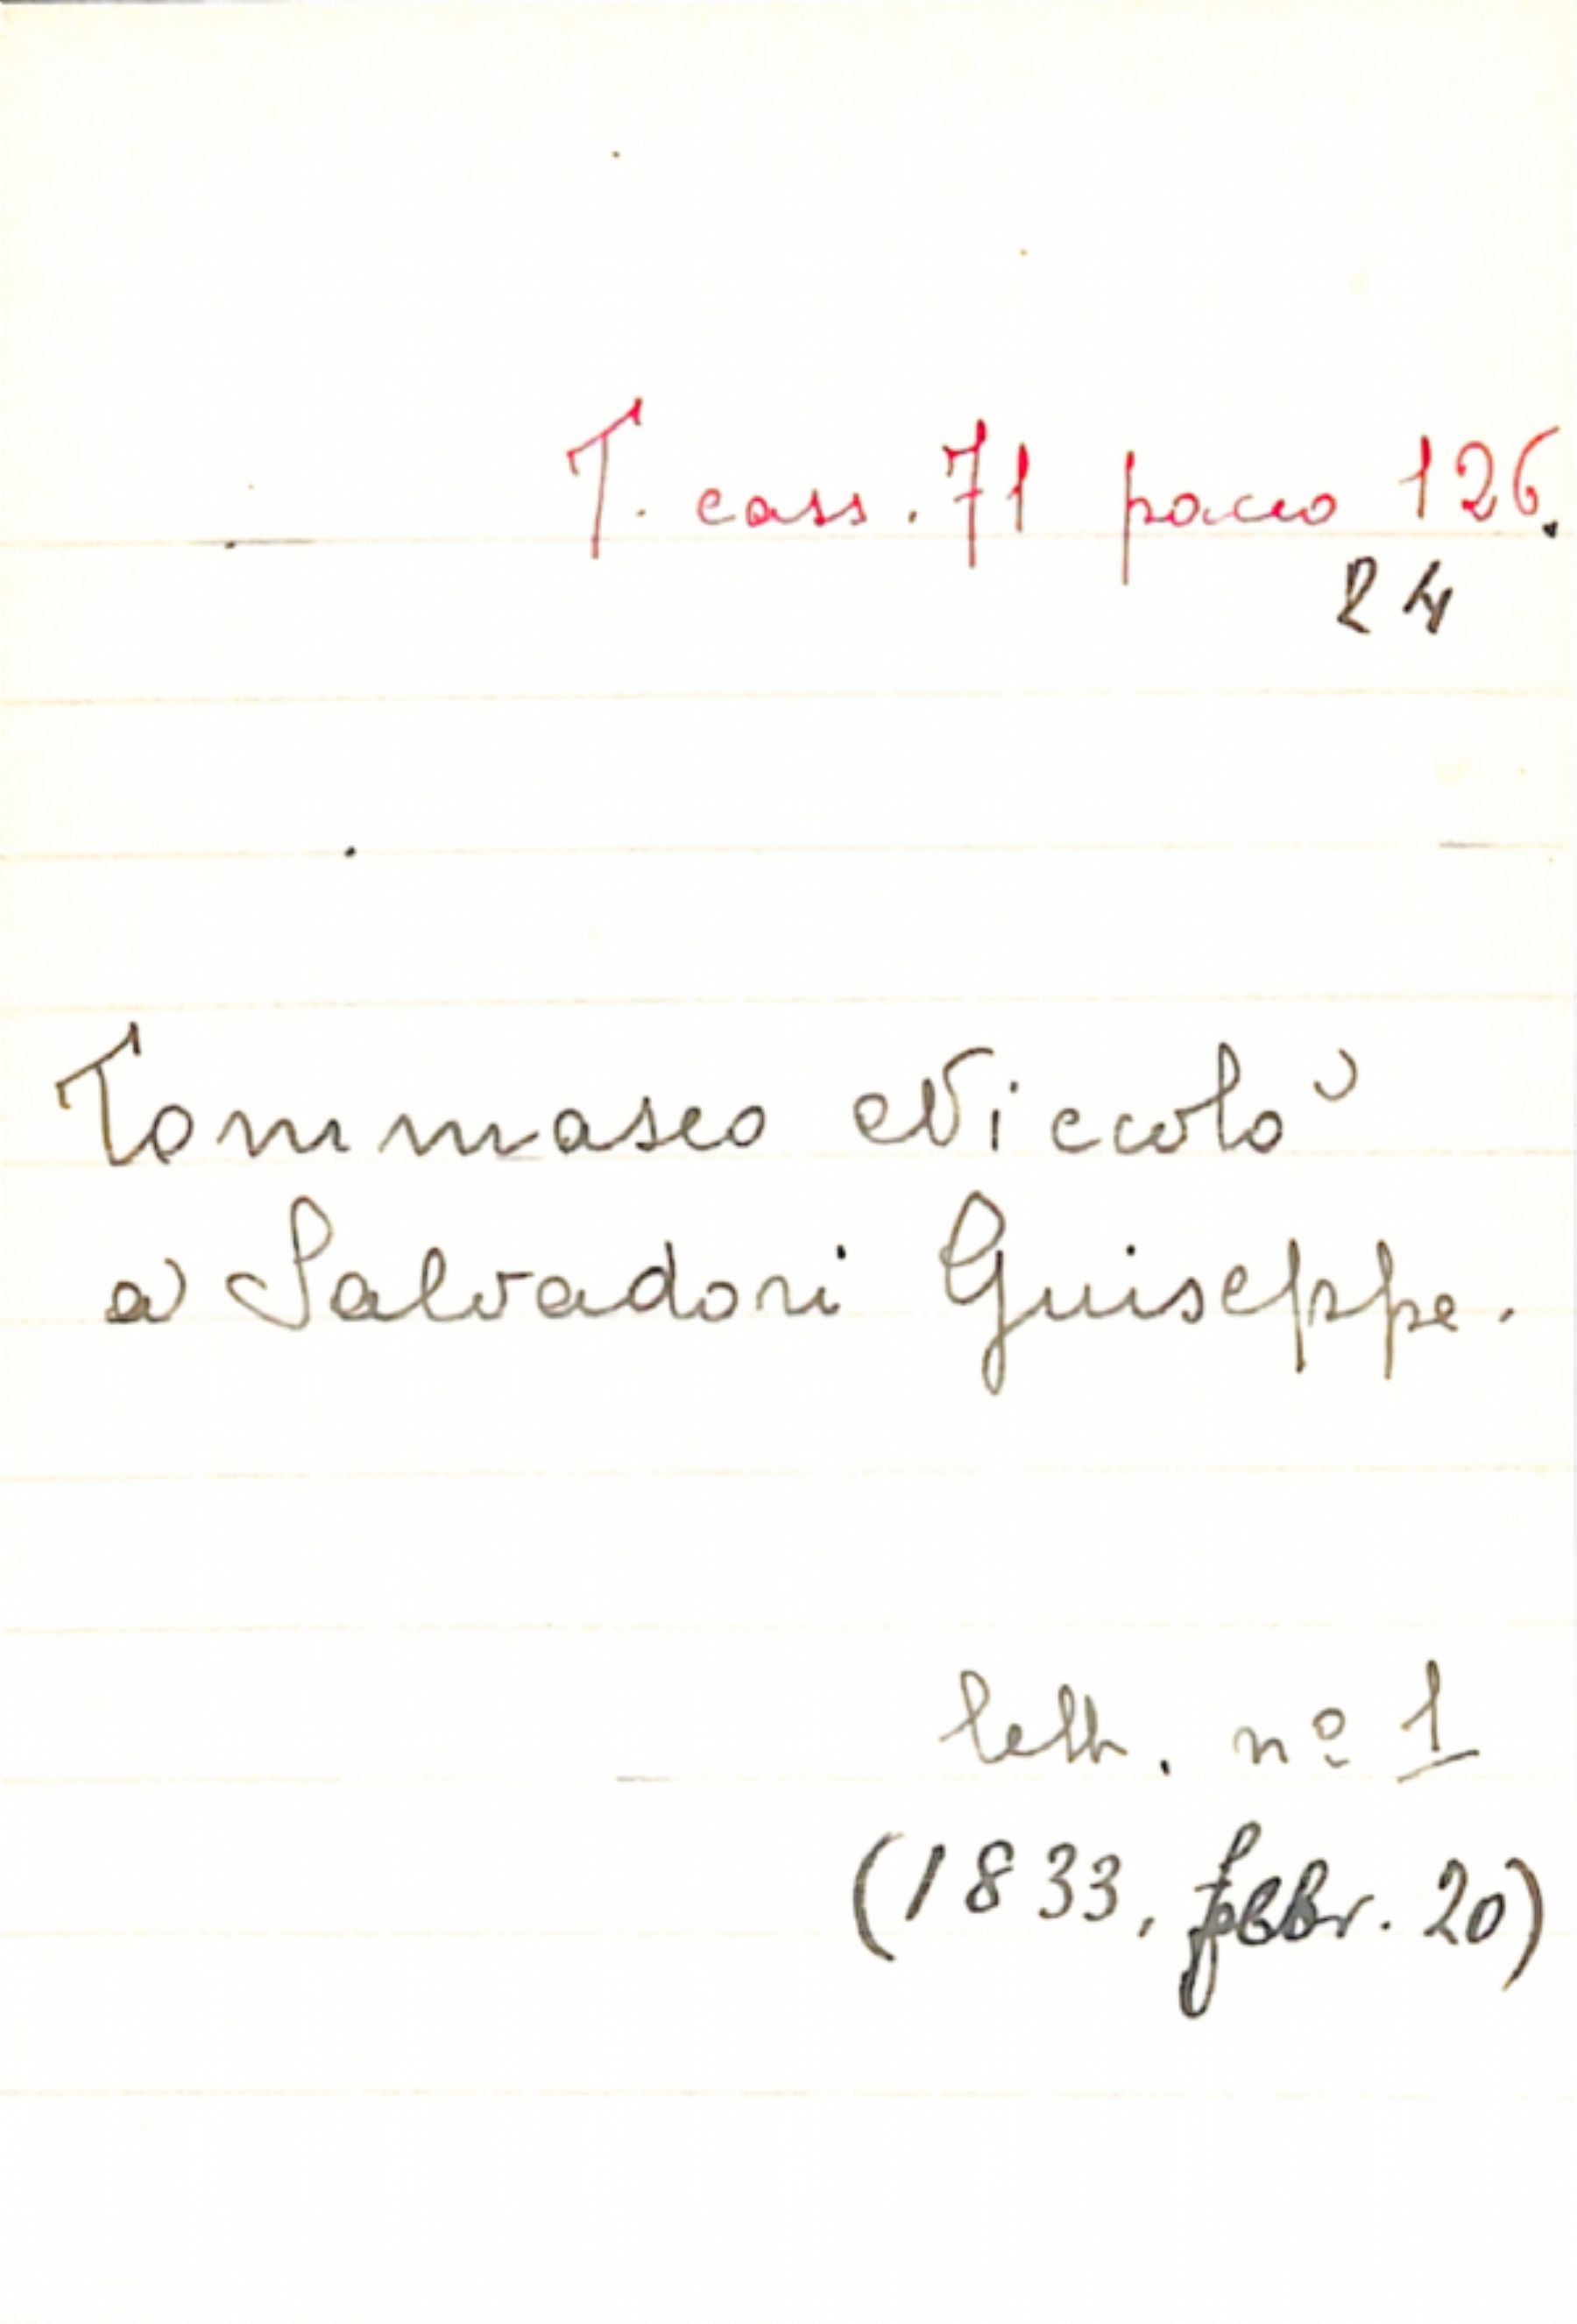 T. cass. 71 pacco 126.
24
Tommaseo Niccolò
a Salvadori Guiseppe.
lett. nº 1
(1833, febbr. 20)